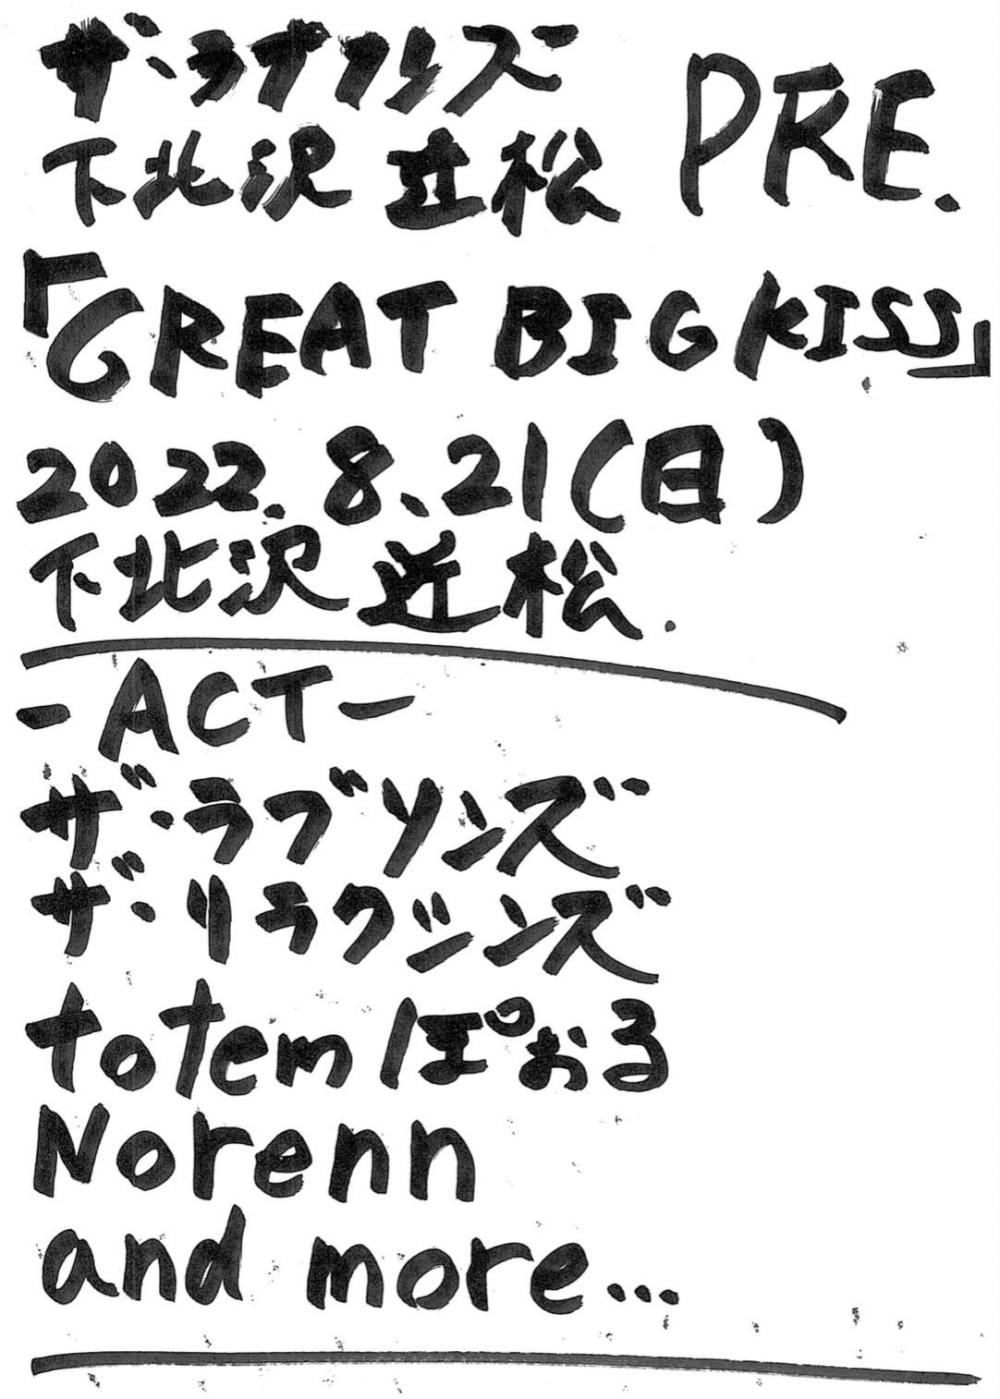 ザ・ラブソンズ
下北沢 近松 PRE.
「GREAT BIG KISS」
2022.8.21(日)
下北沢 近松.
-ACT-
ザ・ラブソンズ
ザ・リラクシンズ
totemぽおる
Norenn
and more...